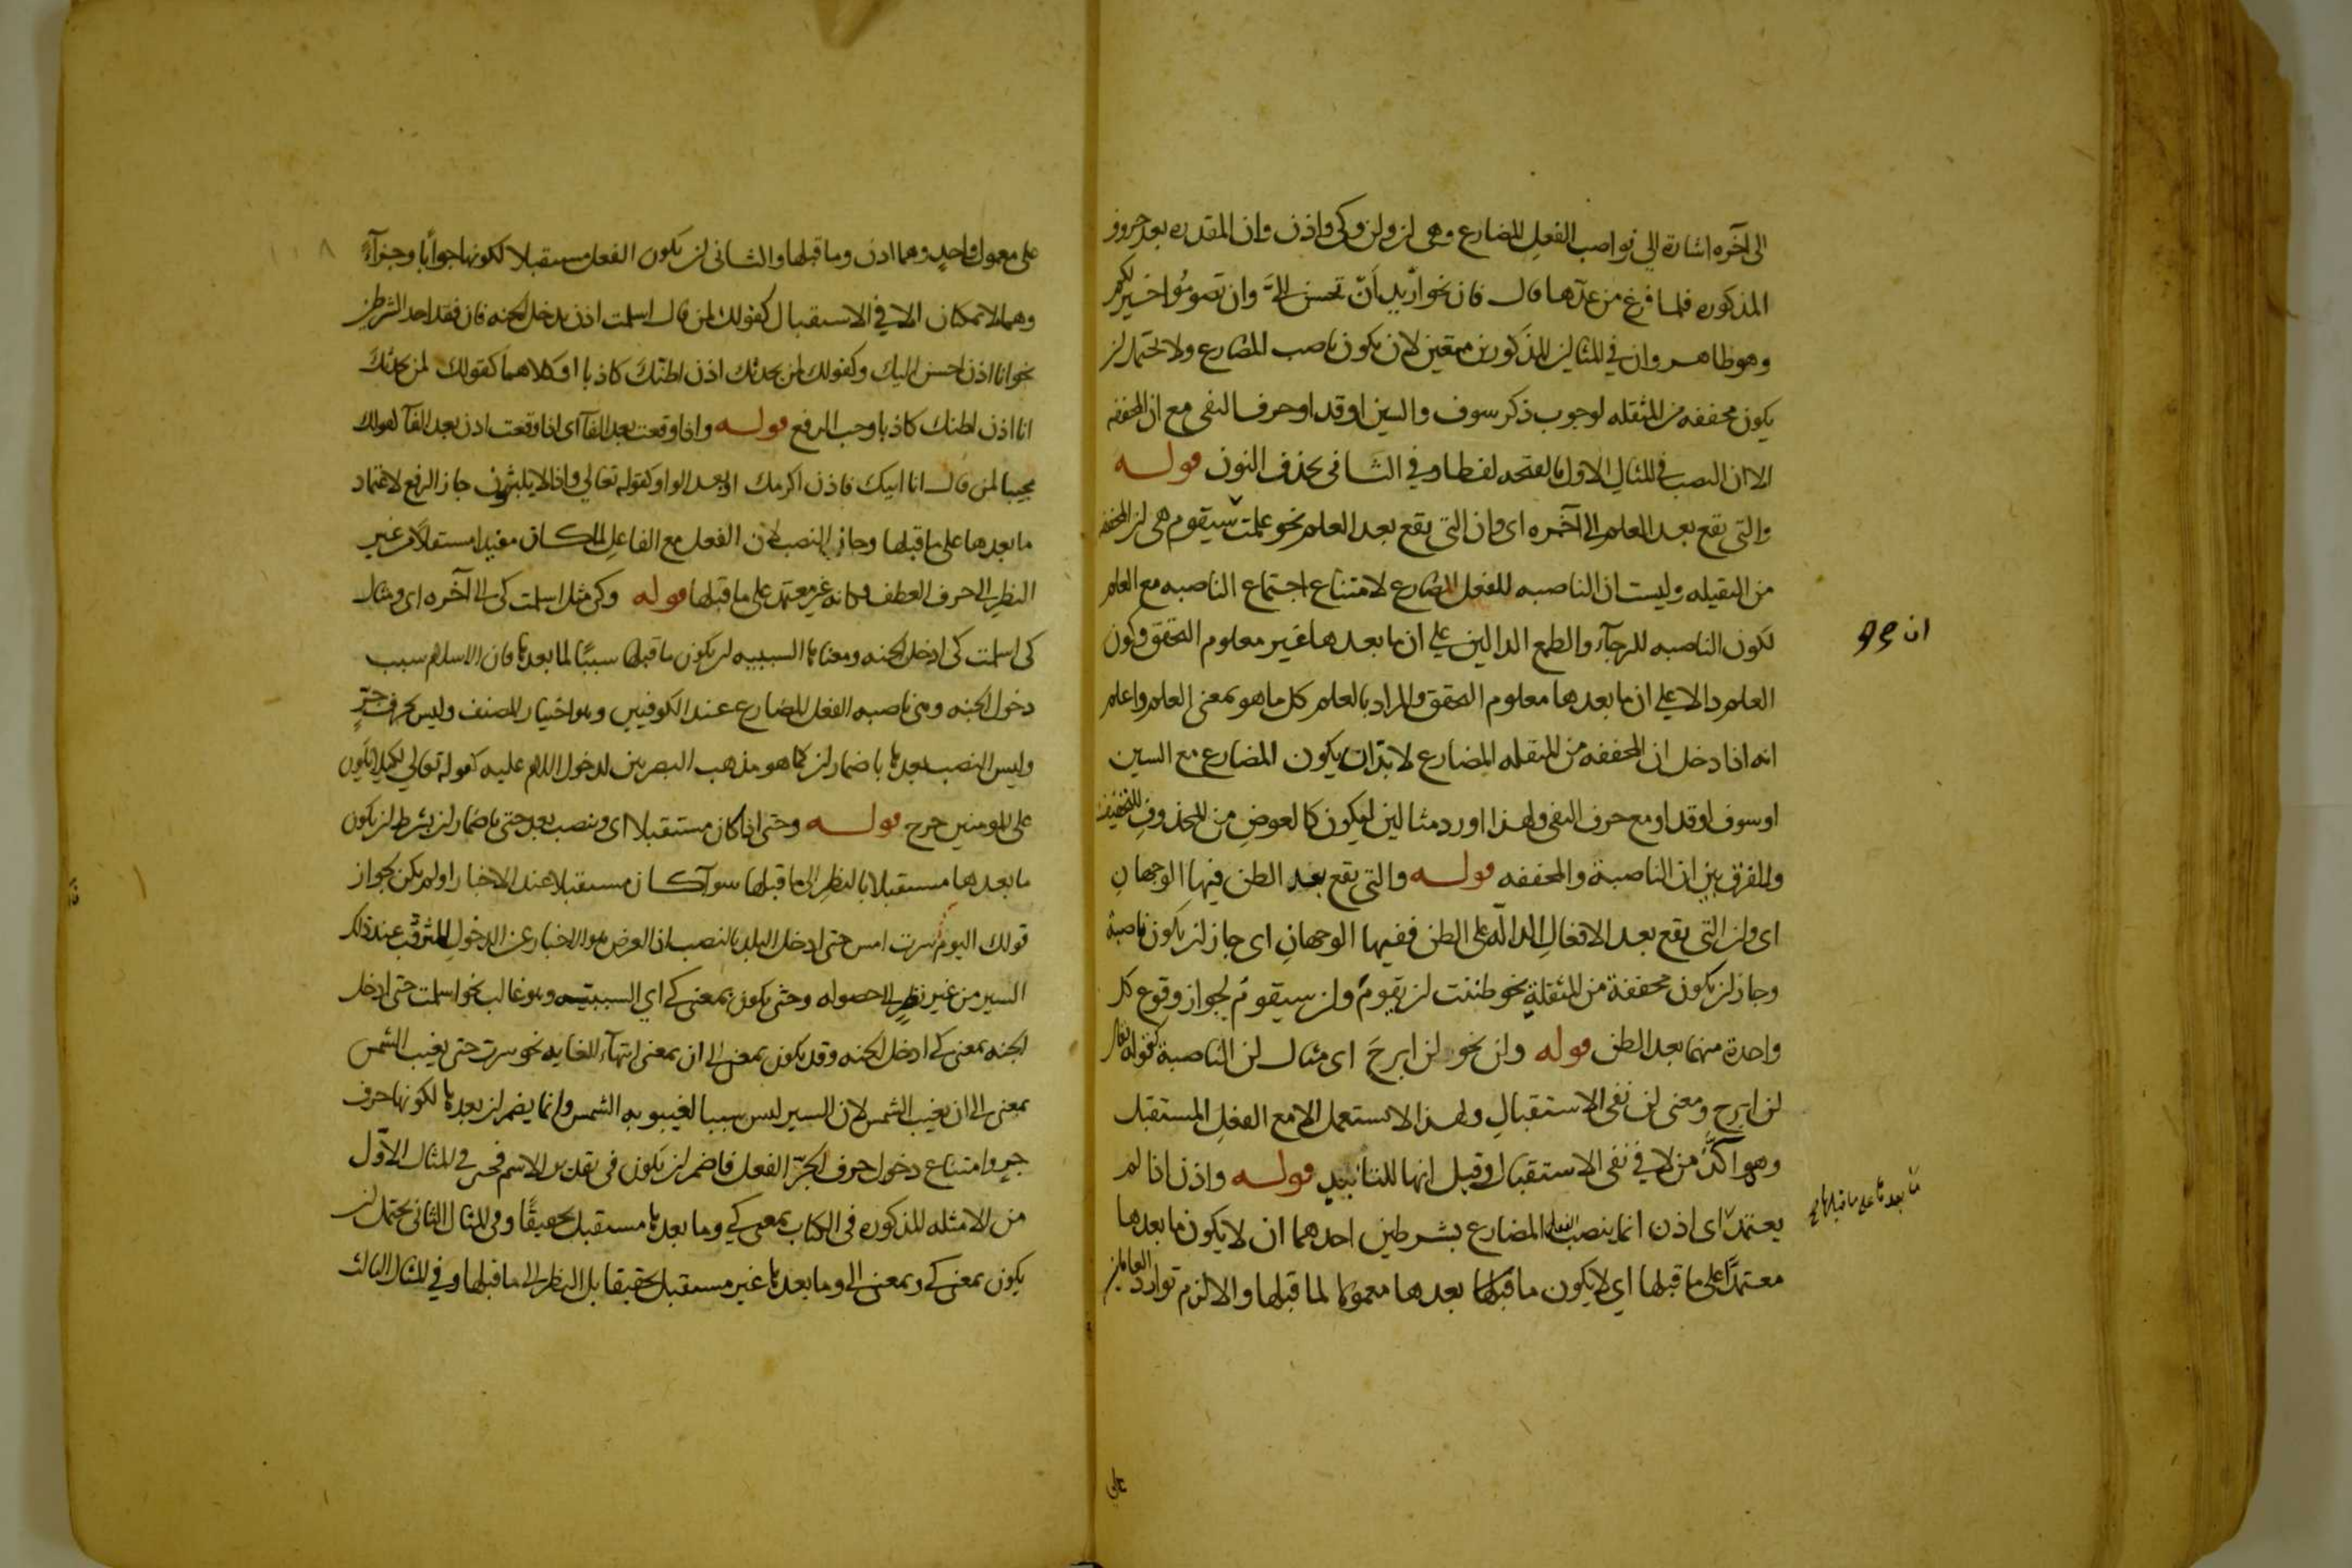 الى آخره اشارة الى نواصب الفعل المضارع وهى ان ولن وكى واذن وان المقدره بعد حروف
المذكوره فلما فرغ من عدّها قال فان نحو اريد أن تحسن الىّ وان تصوموا خير لكم
وهو ظاهر وان في المثالين المذكورين متعين لان يكون ناصب المضارع ولا يحتمل ان
يكون مخففه من المثقله لوجوب ذكر سوف والسين او قد او حرف النفى مع ان المخففه
الا ان النصب في المثال الاول بالفتحه لفظا وفي الثاني بحذف النون قوله
والتى يقع بعد العلم الى آخره اى وان التى يقع بعد العلم نحو علمت ان سيقوم هى ان المخففه
من الثقيله وليست ان الناصبه للفعل المضارع لامتناع اجتماع الناصبه مع العلم
لكون الناصبه للرجآء والطمع الدالين على ان ما بعدها غير معلوم التحقق وكون
العلم دالا على ان ما بعدها معلوم التحقق والمراد بالعلم كل ما هو بمعنى العلم واعلم
انه اذا دخل ان المخففه من المثقله المضارع لا بدّ ان يكون المضارع مع السين
او سوف او قد او مع حرف النفى ولهذا اورد مثالين ليكون كالعوض من المحذوف للتخفيف
وللفرق بين ان الناصبة والمخففه قوله والتى يقع بعد الظن فيها الوجهان
اى وان التى يقع بعد الافعال الدالّه على الظن ففيها الوجهان اى جاز ان يكون ناصبة
وجاز ان يكون مخففة من المثقلة نحو ظننت ان يقوم وان سيقوم لجواز وقوع كل
واحدة منهما بعد الظن قوله ولن نحو لن ابرح اى مثال لن الناصبة كقوله تعالى
لن ابرح ومعنى لن نفى الاستقبال ولهذا لا تستعمل الا مع الفعل المستقبل
وهو آكد من لا في نفى الاستقبال وقيل انها للتأبيد قوله واذن اذا لم
يعتمد اى اذن انما ينصب الفعل المضارع بشرطين احدهما ان لا يكون ما بعدها
معتمدًا على ما قبلها اى لا يكون ما قبلها بعدها معمولا لما قبلها والا لزم توارد العاملين
ما بعدها على ما قبلها
على
على معمول واحد وهما اذن وما قبلها والثانى ان يكون الفعل مستقبلا لكونها جوابًا وجزآءً
وهما لا يمكنان الا في الاستقبال كقولك لمن قال اسلمت اذن تدخل الجنه فان فقد احد الشرطين
نحو انا اذن احسن اليك وكقولك لمن يحدثك اذن اظنّك كاذبا او كلاهما كقولك لمن يحدثك
انا اذن اظنك كاذبا وجب الرفع قوله واذا وقعت بعد الفآ اى اذا وقعت اذن بعد الفآ كقولك
مجيبا لمن قال انا اتيك فاذن اكرمك او بعد الواو كقوله تعالى واذا لا يلبثون جاز الرفع لاعتماد
ما بعدها على ما قبلها وجاز النصب لان الفعل مع الفاعل لما كان مفيدا مستقلا من غير
النظر الى حرف العطف فكانه غير معتمد على ما قبلها قوله وكى مثل اسلمت كى الى آخره اى ومثال
كى اسلمت كى ادخل الجنه ومعناها السببيه اى يكون ما قبلها سببًا لما بعدها فان الاسلام سبب
دخول الجنه وهى ناصبه الفعل المضارع عند الكوفيين وهو اختيار المصنف وليس بحرف جرّ
وليس النصب بعدها باضمار ان كما هو مذهب البصريين لدخول اللام عليه كقوله تعالى لكيلا يكون
على المومنين حرج قوله وحتى اذا كان مستقبلا اى وينصب بعد حتى باضمار ان بشرط ان يكون
ما بعدها مستقبلا بالنظر الى ما قبلها سوآ كان مستقبلا عند الاخبار او لم يكن لجواز
قولك اليوم سرت امس حتى ادخل البلد بالنصب اذ الغرض هو الاخبار عن الدخول المترقب عند ذلك
السير من غير نظر الى حصوله وحتى يكون بمعنى كى اي السببيه وهو غالب نحو اسلمت حتى ادخل
الجنه بمعنى كى ادخل الجنه وقد يكون بمعنى الى ان بمعنى انتهآء للغايه نحو سرت حتى يغيب الشمس
بمعنى الى ان يغيب الشمس لان السير ليس سببا لغيبوبه الشمس وانما يضمر ان بعدها لكونها حرف
جر وامتناع دخول حرف الجر الفعل فاضمر ان يكون فى تقدير الاسم فحتى في المثال الاول
من الامثله المذكوره فى الكتاب بمعنى كى وما بعدها مستقبل تحقيقًا وفى المثال الثانى يحتمل ان
يكون بمعنى كى وبمعنى الى وما بعدها غير مستقبل تحقيقا بل بالنظر الى ما قبلها وفي المثال الثالث